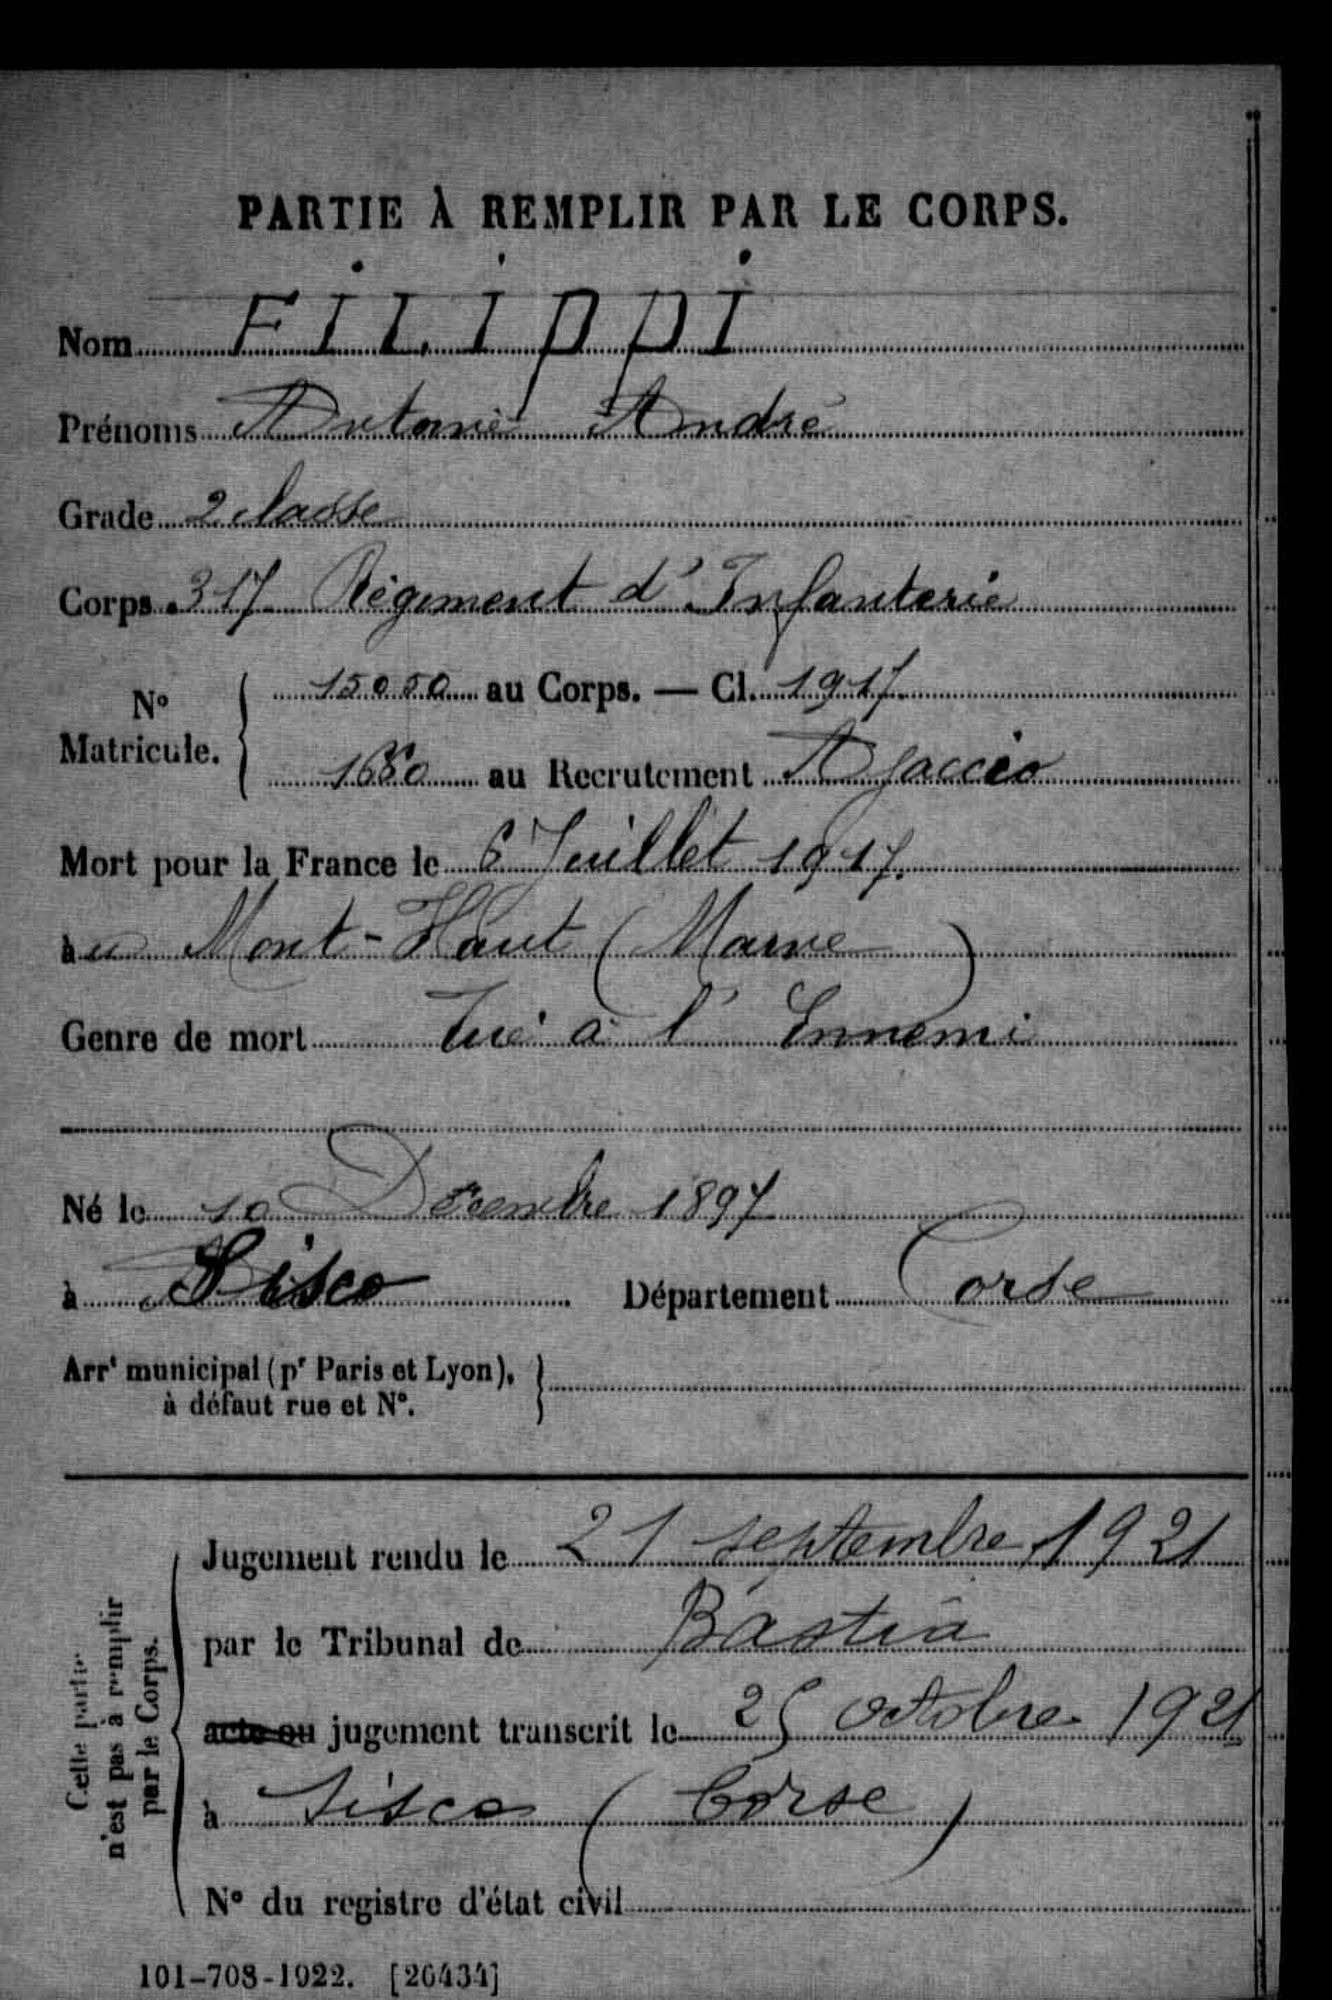 PARTIE À REMPLIR PAR LE CORPS.
Nom FiLippi
Prénoms Antoine André
Grade 2 classe
Corps 317 Régiment d'Infanterie
N° Matricule. 15050 au Corps. — Cl. 1917.
1650 au Recrutement Ajaccio
Mort pour la France le 6 Juillet 1917.
à u Mont-Haut (Marne)
Genre de mort Tué à l'Ennemi
Né le 10 Décembre 1897
à Sisco Département Corse
Arrt municipal (pr Paris et Lyon),
à défaut rue et N°.
Cette partie
n'est pas à remplir
par le Corps.
Jugement rendu le 21 septembre 1921
par le Tribunal de Bastia
acte ou jugement transcrit le 25 octobre 1921
à Sisco (Corse)
N° du registre d'état civil
101-708-1922. [26434]